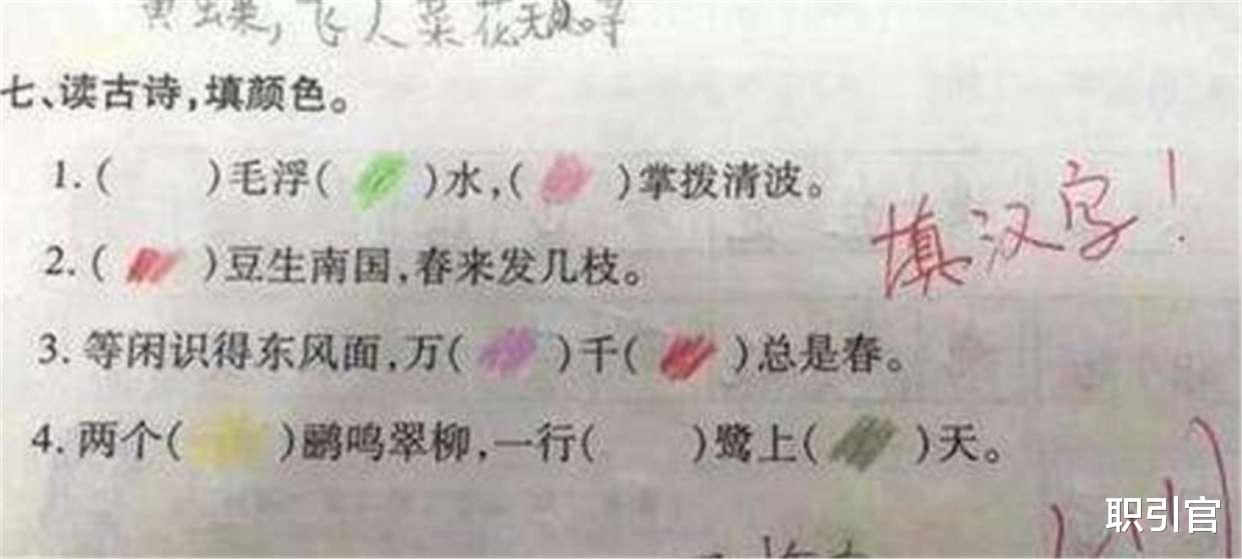 黄出来,飞人菜花无处寻
七、读古诗,填颜色。
1.( )毛浮( )水,( )掌拨清波。
填汉字!
2.( )豆生南国,春来发几枝。
3.等闲识得东风面,万( )千( )总是春。
4.两个( )鹂鸣翠柳,一行( )鹭上( )天。
职引官